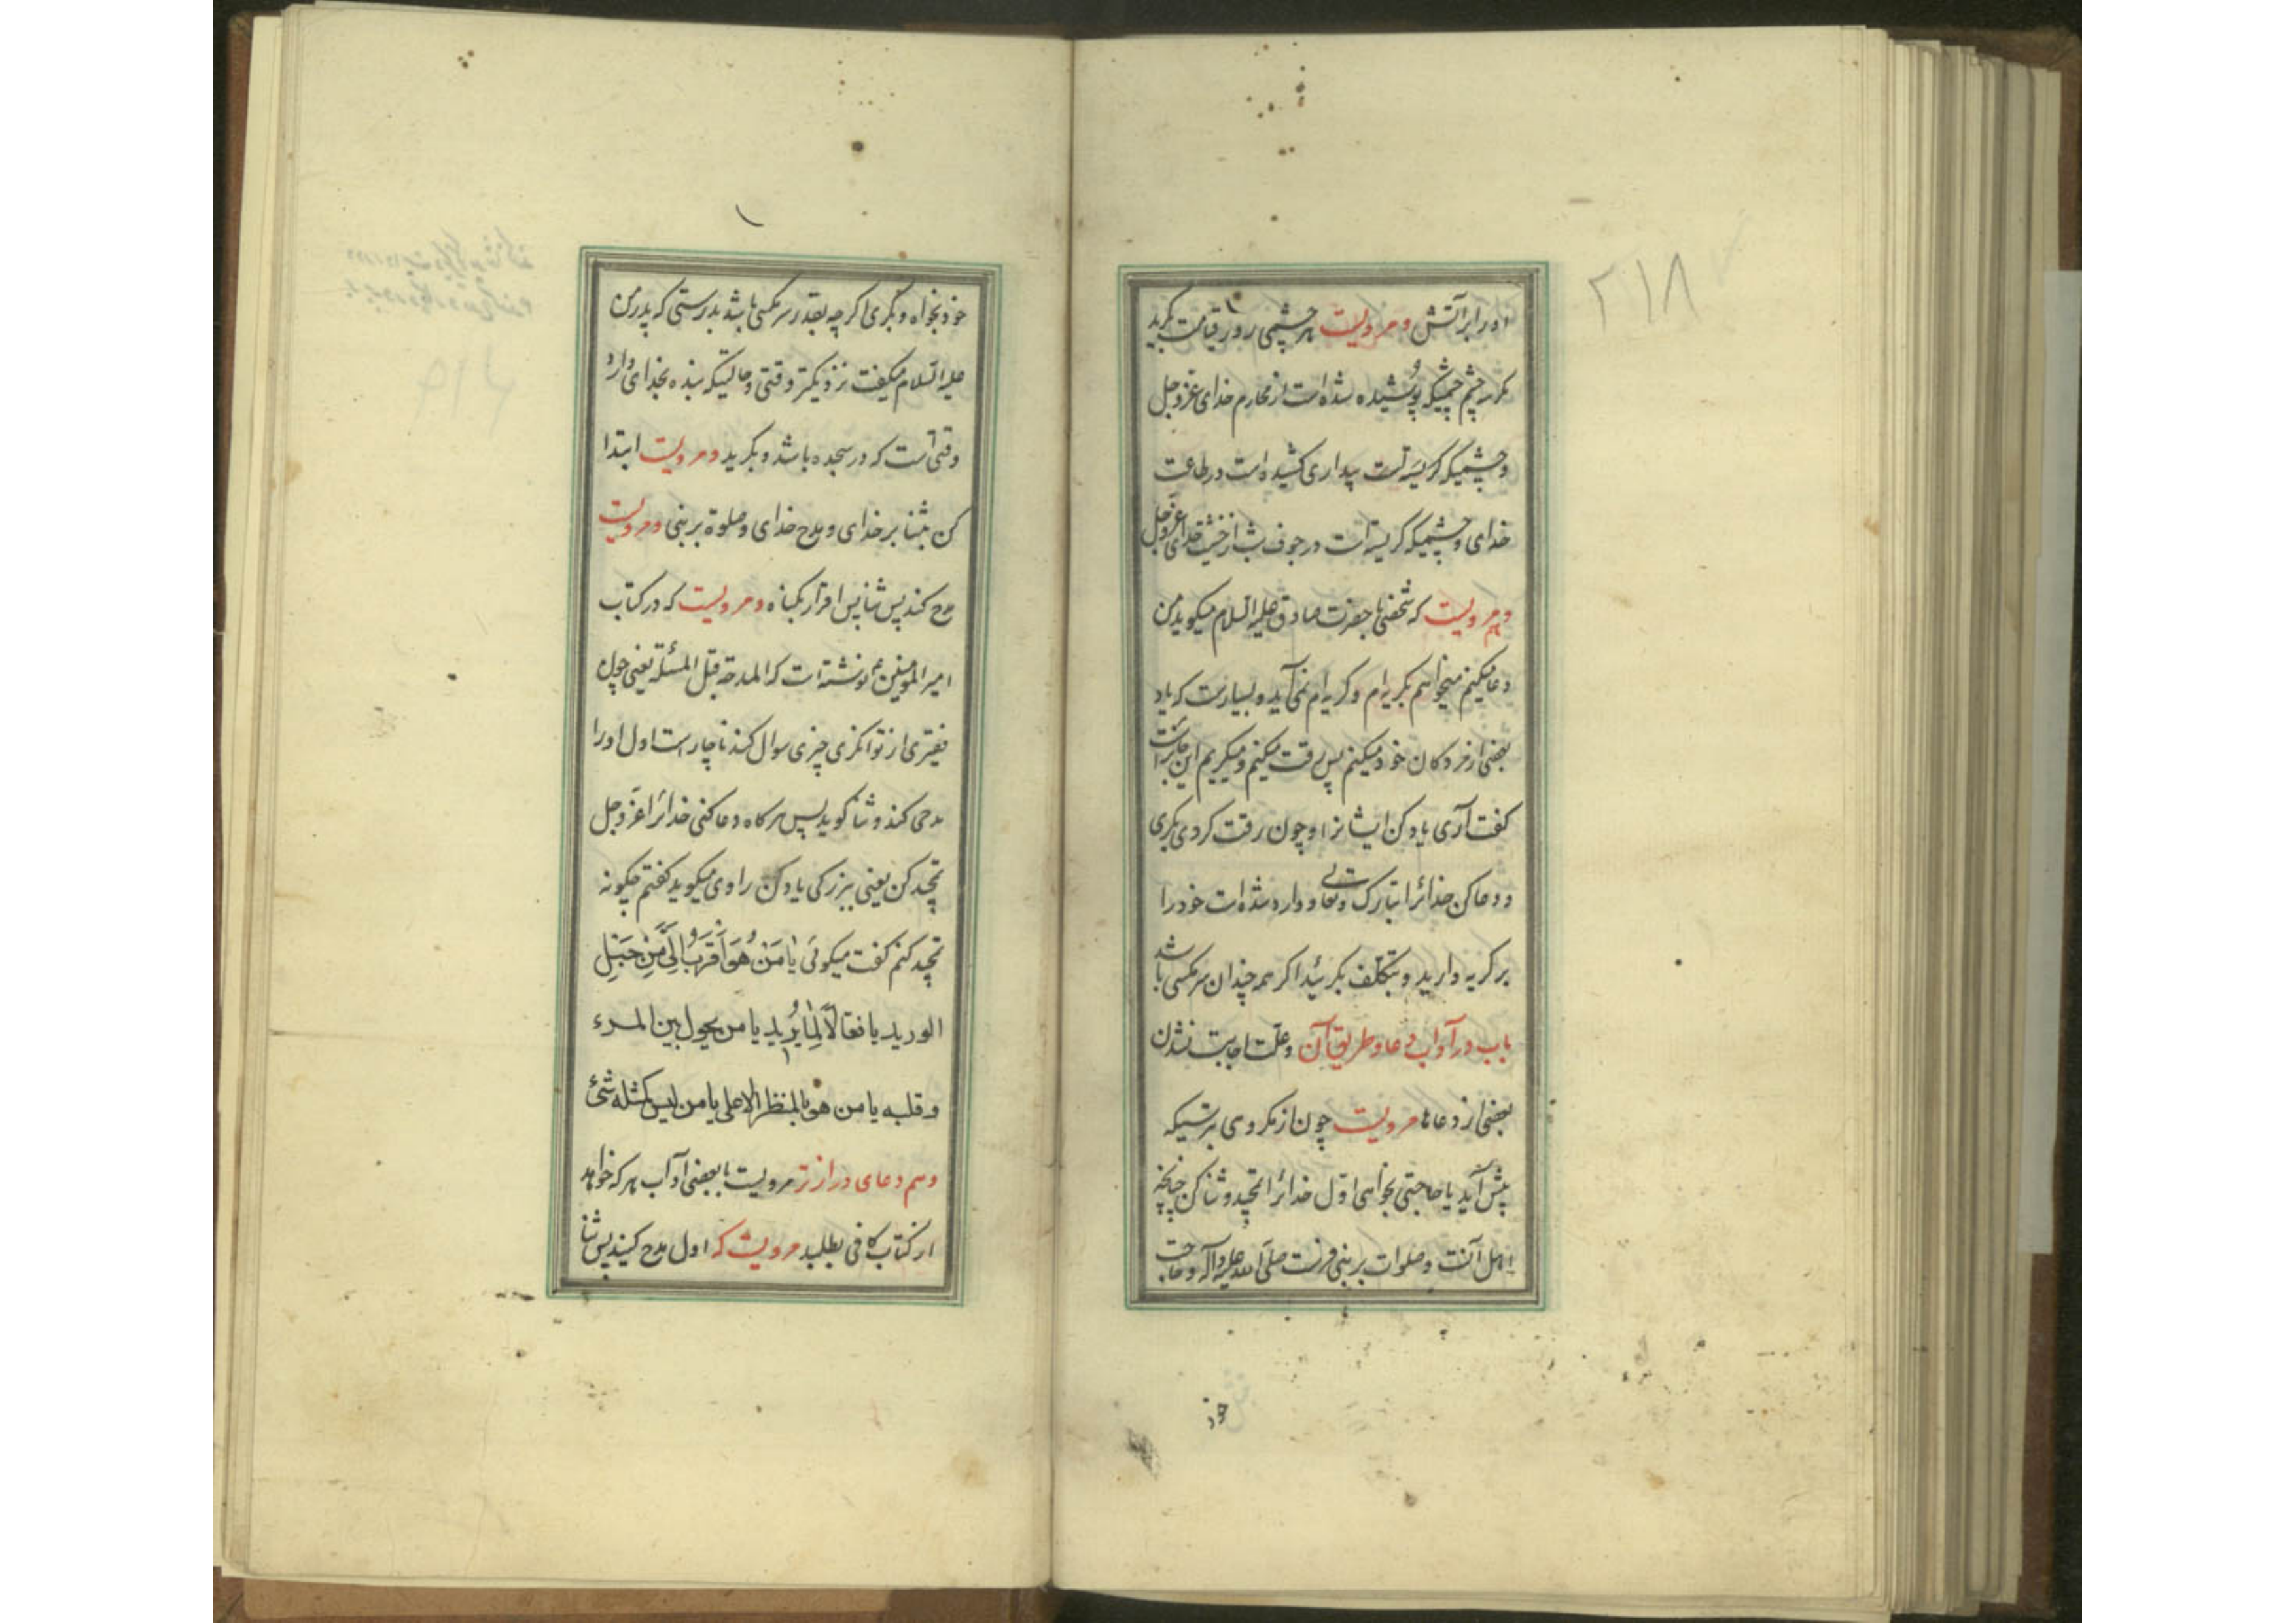 ۲۱۸
او را بر آتش و مرویست هر چشمی روز قیامت بگرید
مگر سه چشم چشمیکه پوشیده شده است از محارم خدای عزوجل
و چشمیکه بیداری کشیده است در طاعت
خدای و چشمیکه گریسته است در جوف شب از خشیت خدای عزوجل
و مرویست که شخصی با حضرت صادق علیه السلام میگوید من
دعا میکنم میخواهم بگریه‌ام و گریه‌ام نمی‌آید و بسیارست که یاد
بعضی از مردکان خود میکنم پس رقت میکنم و میگریم این جائز است
گفت آری یاد کن ایشانرا و چون رقت کردی بگری
و دعا کن خدائرا تبارک و تعالی و وارد شده است خود را
بر گریه دارید و بتکلف بگریید اگر همه چندان سر مگسی باشد
باب در آداب دعا و طریق آن و علت اجابت نشدن
بعضی از دعاها مرویست چون از مکروهی بترسیکه
پیش آید یا حاجتی بخواهی اول خدائرا تمجید و ثنا کن چنانچه
اهل آنست و صلوات بر نبی فرست صلی الله علیه و آله و حاجت
خود
خود بخواه و بگری اگر چه بقدر سر مگسی باشد بدرستی که پدر من
علیه السلام میگفت نزدیکتر وقتی و حالتیکه بنده بخدای دارد
وقتی است که در سجده باشد و بگرید و مرویست ابتدا
کن بثنا بر خدای و مدح خدای و صلوة بر نبی و مرویست
مدح کند پس ثنا پس اقرار بگناه و مرویست که در کتاب
امیر المومنین ع نوشته است که المدحة قبل المسئلة یعنی چون
فقیری از توانگری چیزی سوال کند ناچار است اول او را
مدحی کند و ثنا گوید پس هرگاه دعا کنی خدائرا عزوجل
تمجید کن یعنی ببزرگی یاد کن راوی میگوید گفتم چگونه
تمجید کنم گفت میگوئی یا مَن هُوَ اَقرَبُ اِلَیَّ مِن حَبلِ
الورید یا فعّالاً لِما یُرید یا من یحول بین المرء
و قلبه یا من هو بالمنظر الاعلی یا من لیس کمثله شیء
و هم دعای درازتر مرویست با بعضی آداب هر که خواهد
از کتاب کافی بطلبد مرویست که اول مدح کنید پس ثنا